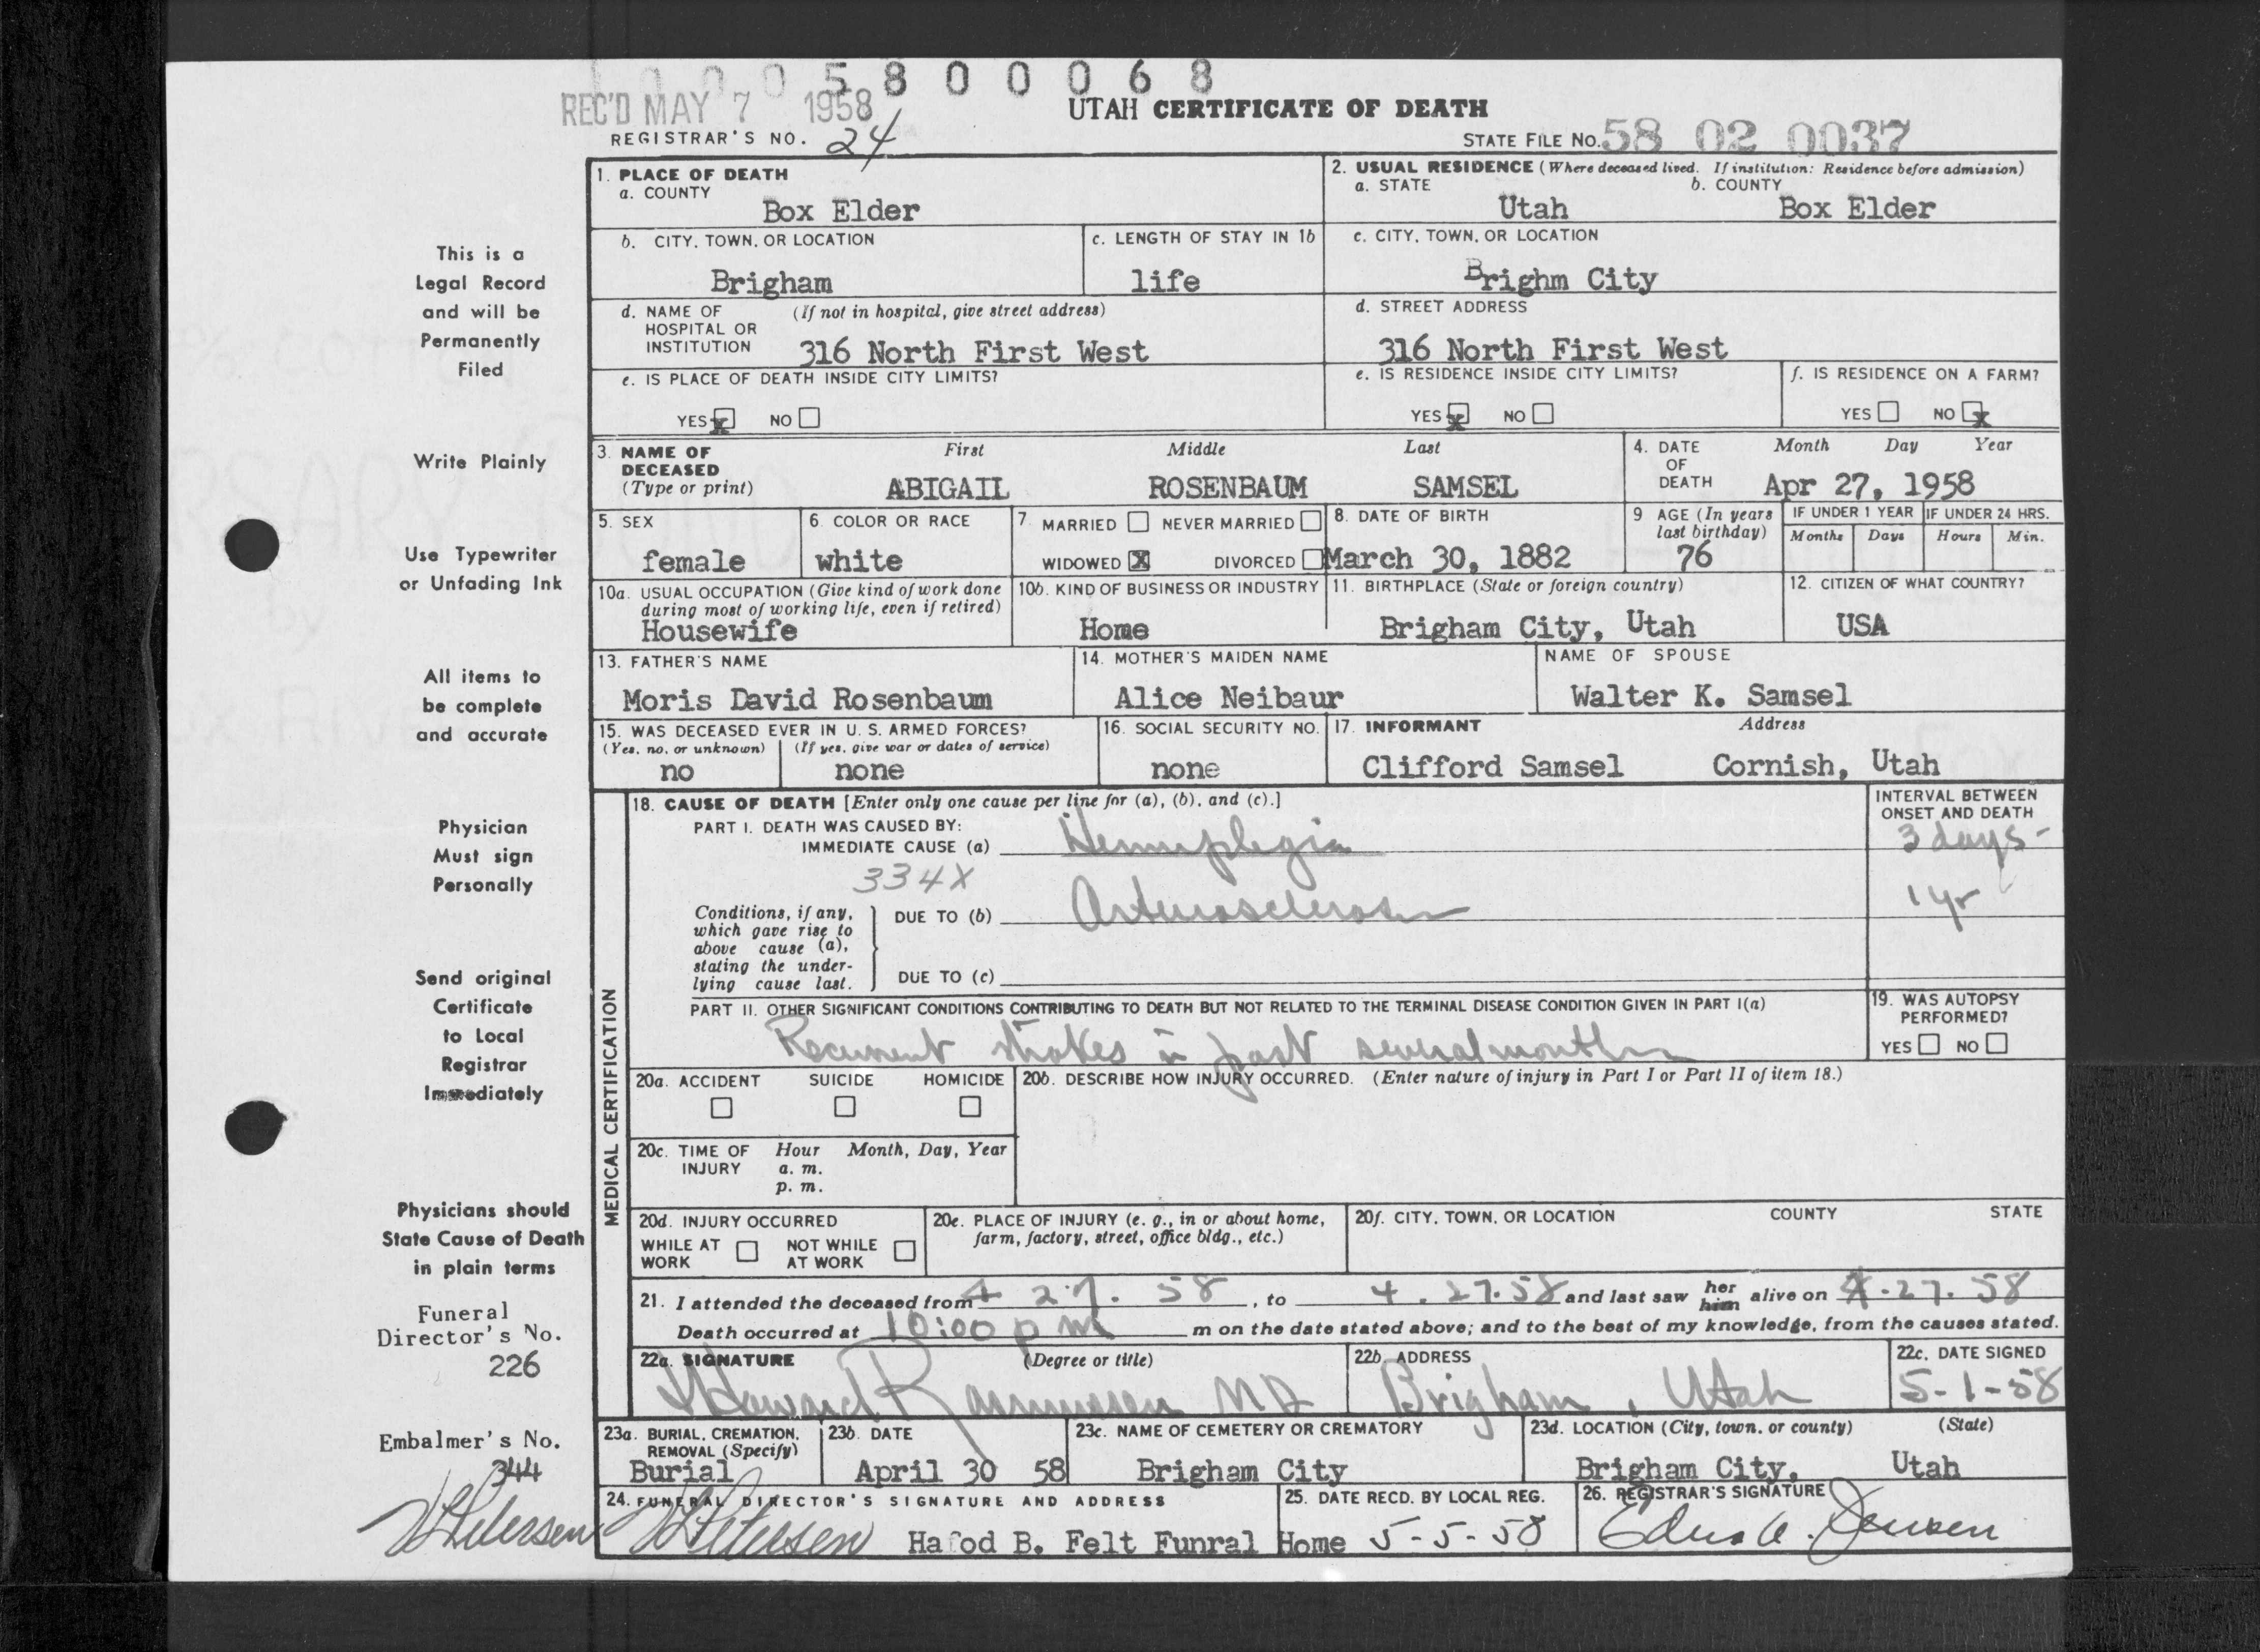 1 0 0 0 5 8 0 0 0 6 8
REC'D MAY 7 1958
UTAH CERTIFICATE OF DEATH
REGISTRAR'S NO. 24
STATE FILE NO. 58 02 0037
1. PLACE OF DEATH
a. COUNTY
Box Elder
2. USUAL RESIDENCE (Where deceased lived. If institution: Residence before admission)
a. STATE b. COUNTY
Utah Box Elder
b. CITY, TOWN, OR LOCATION
Brigham
c. LENGTH OF STAY IN 1b
life
c. CITY, TOWN, OR LOCATION
Brighm City
d. NAME OF (If not in hospital, give street address)
HOSPITAL OR
INSTITUTION 316 North First West
d. STREET ADDRESS
316 North First West
e. IS PLACE OF DEATH INSIDE CITY LIMITS?
YES x NO
e. IS RESIDENCE INSIDE CITY LIMITS?
YES x NO
f. IS RESIDENCE ON A FARM?
YES NO x
3. NAME OF DECEASED (Type or print)
First Middle Last
ABIGAIL ROSENBAUM SAMSEL
4. DATE OF DEATH
Month Day Year
Apr 27, 1958
5. SEX
female
6. COLOR OR RACE
white
7. MARRIED NEVER MARRIED
WIDOWED X DIVORCED
8. DATE OF BIRTH
March 30, 1882
9 AGE (In years last birthday)
76
IF UNDER 1 YEAR IF UNDER 24 HRS.
Months Days Hours Min.
10a. USUAL OCCUPATION (Give kind of work done
during most of working life, even if retired)
Housewife
10b. KIND OF BUSINESS OR INDUSTRY
Home
11. BIRTHPLACE (State or foreign country)
Brigham City, Utah
12. CITIZEN OF WHAT COUNTRY?
USA
13. FATHER'S NAME
Moris David Rosenbaum
14. MOTHER'S MAIDEN NAME
Alice Neibaur
NAME OF SPOUSE
Walter K. Samsel
15. WAS DECEASED EVER IN U. S. ARMED FORCES?
(Yes, no, or unknown) (If yes, give war or dates of service)
no none
16. SOCIAL SECURITY NO.
none
17. INFORMANT Address
Clifford Samsel Cornish, Utah
MEDICAL CERTIFICATION
18. CAUSE OF DEATH [Enter only one cause per line for (a), (b), and (c).]
INTERVAL BETWEEN
ONSET AND DEATH
PART I. DEATH WAS CAUSED BY:
IMMEDIATE CAUSE (a) Hemiplegia 3 days -
334X
Conditions, if any,
which gave rise to
above cause (a),
stating the under-
lying cause last.
DUE TO (b) Arteriosclerosis 1 yr
DUE TO (c)
PART II. OTHER SIGNIFICANT CONDITIONS CONTRIBUTING TO DEATH BUT NOT RELATED TO THE TERMINAL DISEASE CONDITION GIVEN IN PART I(a)
Recurrent strokes in past several months
19. WAS AUTOPSY
PERFORMED?
YES NO
20a. ACCIDENT SUICIDE HOMICIDE
20b. DESCRIBE HOW INJURY OCCURRED. (Enter nature of injury in Part I or Part II of item 18.)
20c. TIME OF INJURY
Hour Month, Day, Year
a. m.
p. m.
20d. INJURY OCCURRED
WHILE AT WORK NOT WHILE AT WORK
20e. PLACE OF INJURY (e. g., in or about home,
farm, factory, street, office bldg., etc.)
20f. CITY, TOWN, OR LOCATION COUNTY STATE
21. I attended the deceased from 4 27. 58, to 4. 27. 58 and last saw her him alive on 4. 27. 58
Death occurred at 10:00 p m m on the date stated above; and to the best of my knowledge, from the causes stated.
22a. SIGNATURE (Degree or title)
Howard Rasmussen MD
22b. ADDRESS
Brigham, Utah
22c. DATE SIGNED
5-1-58
23a. BURIAL, CREMATION,
REMOVAL (Specify)
Burial
23b. DATE
April 30 58
23c. NAME OF CEMETERY OR CREMATORY
Brigham City
23d. LOCATION (City, town, or county) (State)
Brigham City, Utah
24. FUNERAL DIRECTOR'S SIGNATURE AND ADDRESS
Petersen Hafod B. Felt Funral Home
25. DATE RECD. BY LOCAL REG.
5-5-58
26. REGISTRAR'S SIGNATURE
Edna A. Jensen
This is a
Legal Record
and will be
Permanently
Filed
Write Plainly
Use Typewriter
or Unfading Ink
All items to
be complete
and accurate
Physician
Must sign
Personally
Send original
Certificate
to Local
Registrar
Immediately
Physicians should
State Cause of Death
in plain terms
Funeral
Director's No.
226
Embalmer's No.
344
Petersen